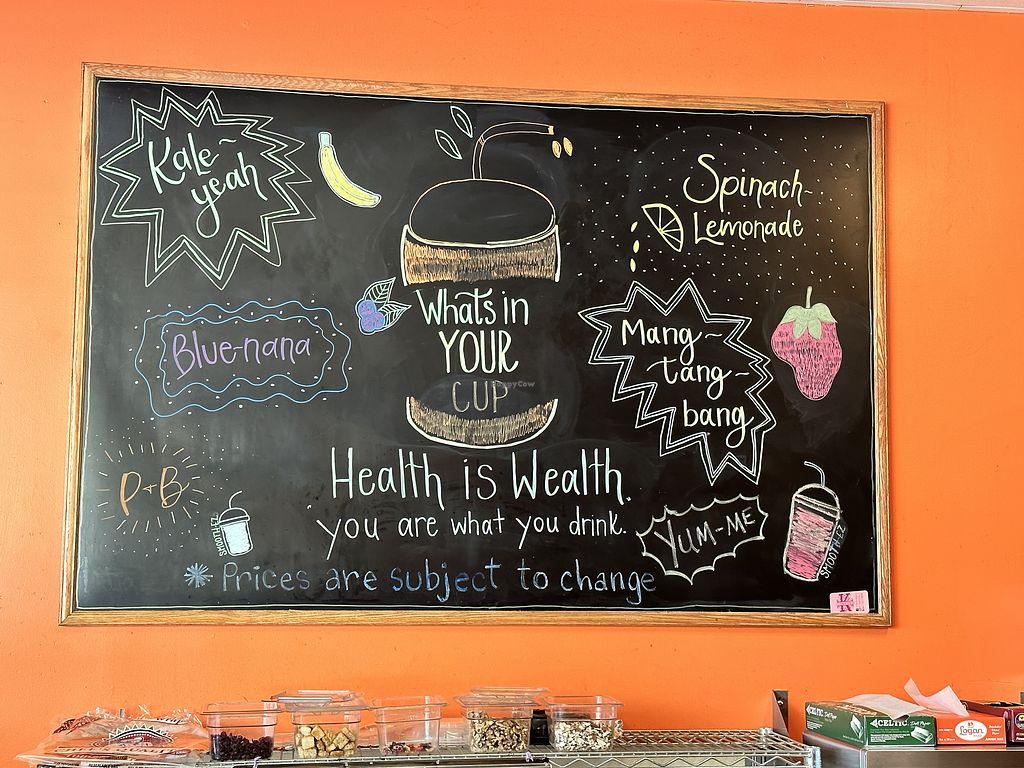 Kale-
yeah
Spinach-
Lemonade
Whats in
YOUR
CUP
Blue-nana
Mang-
tang-
bang
P+B
SMOOTH-EZ
Health is Wealth.
"you are what you drink.
YUM-ME
SMOOTH-EZ
* Prices are subject to change
HappyCow
CELTIC
Logan